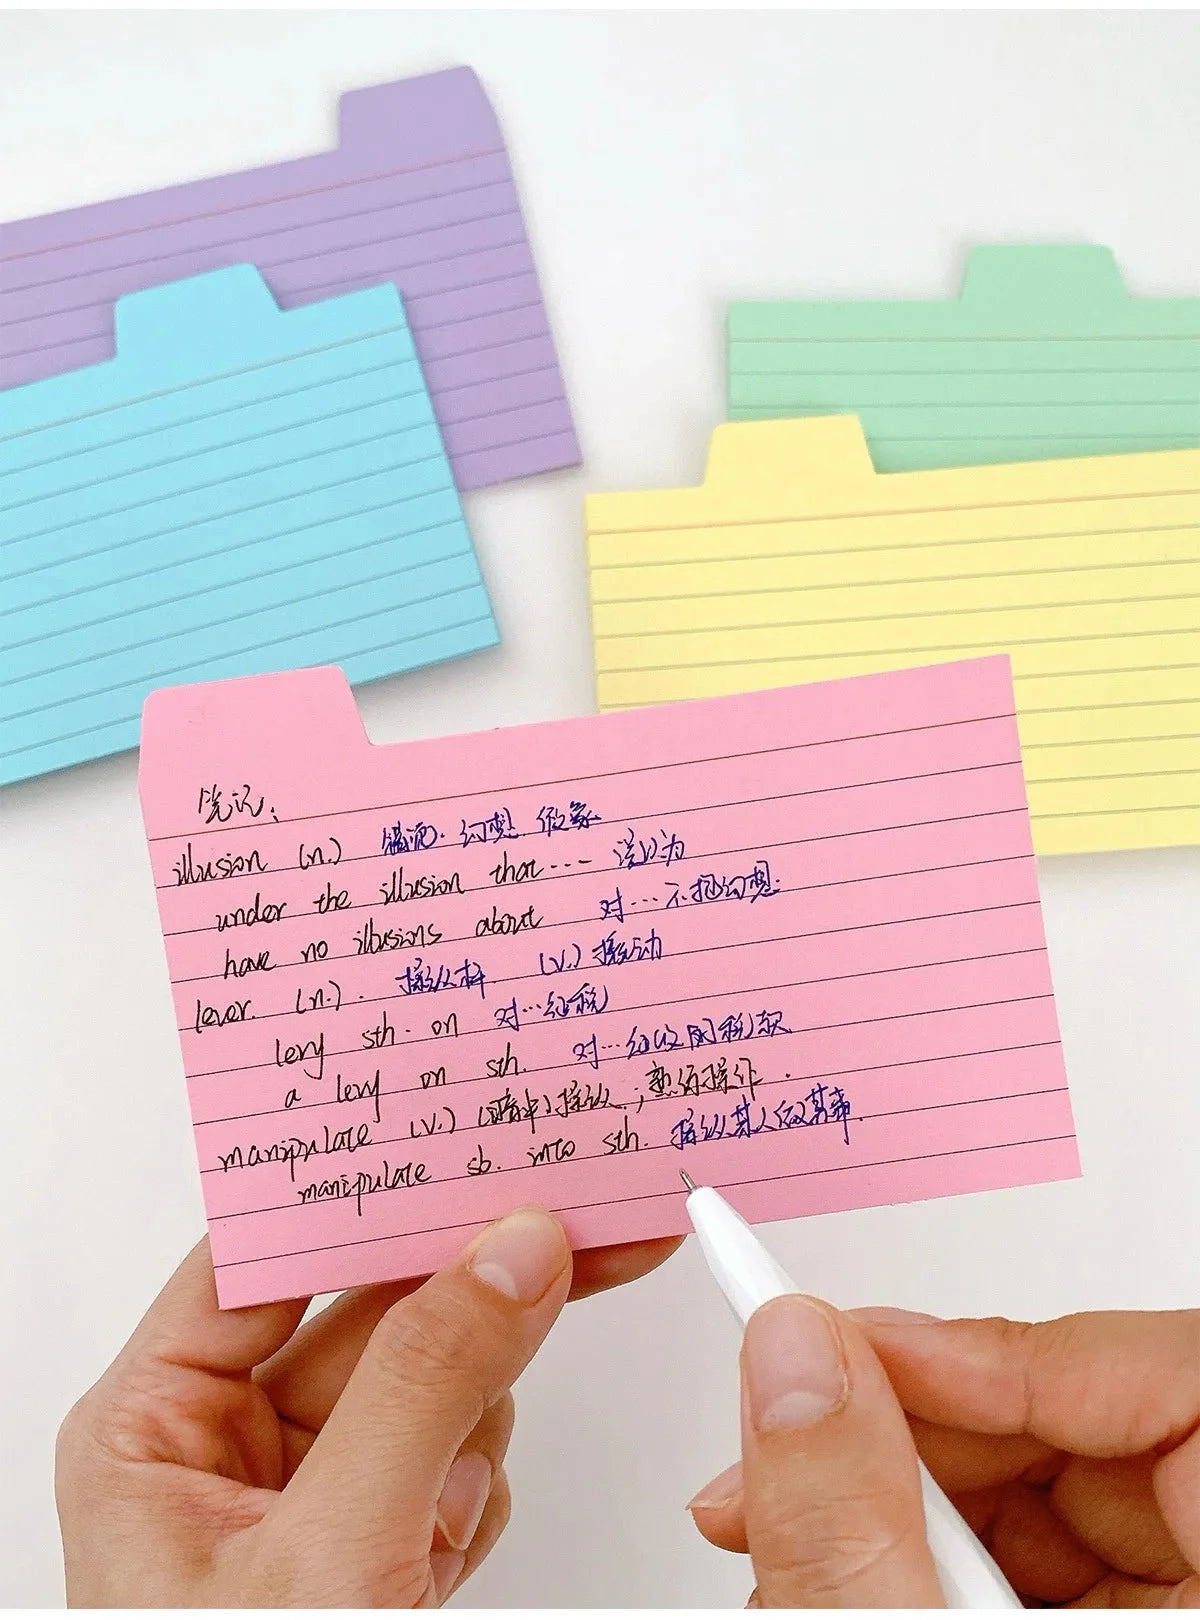 笔记:
illusion (n.) 错觉. 幻想. 假象
under the illusion that ... 误以为
have no illusions about 对...不抱幻想.
lever. (n.). 操纵杆 (v.) 撬动
levy sth. on 对...征税
a levy on sth. 对...征收的税款
manipulate (v.) (暗中)操纵; 熟练操作.
manipulate sb. into sth. 操纵某人做某事.